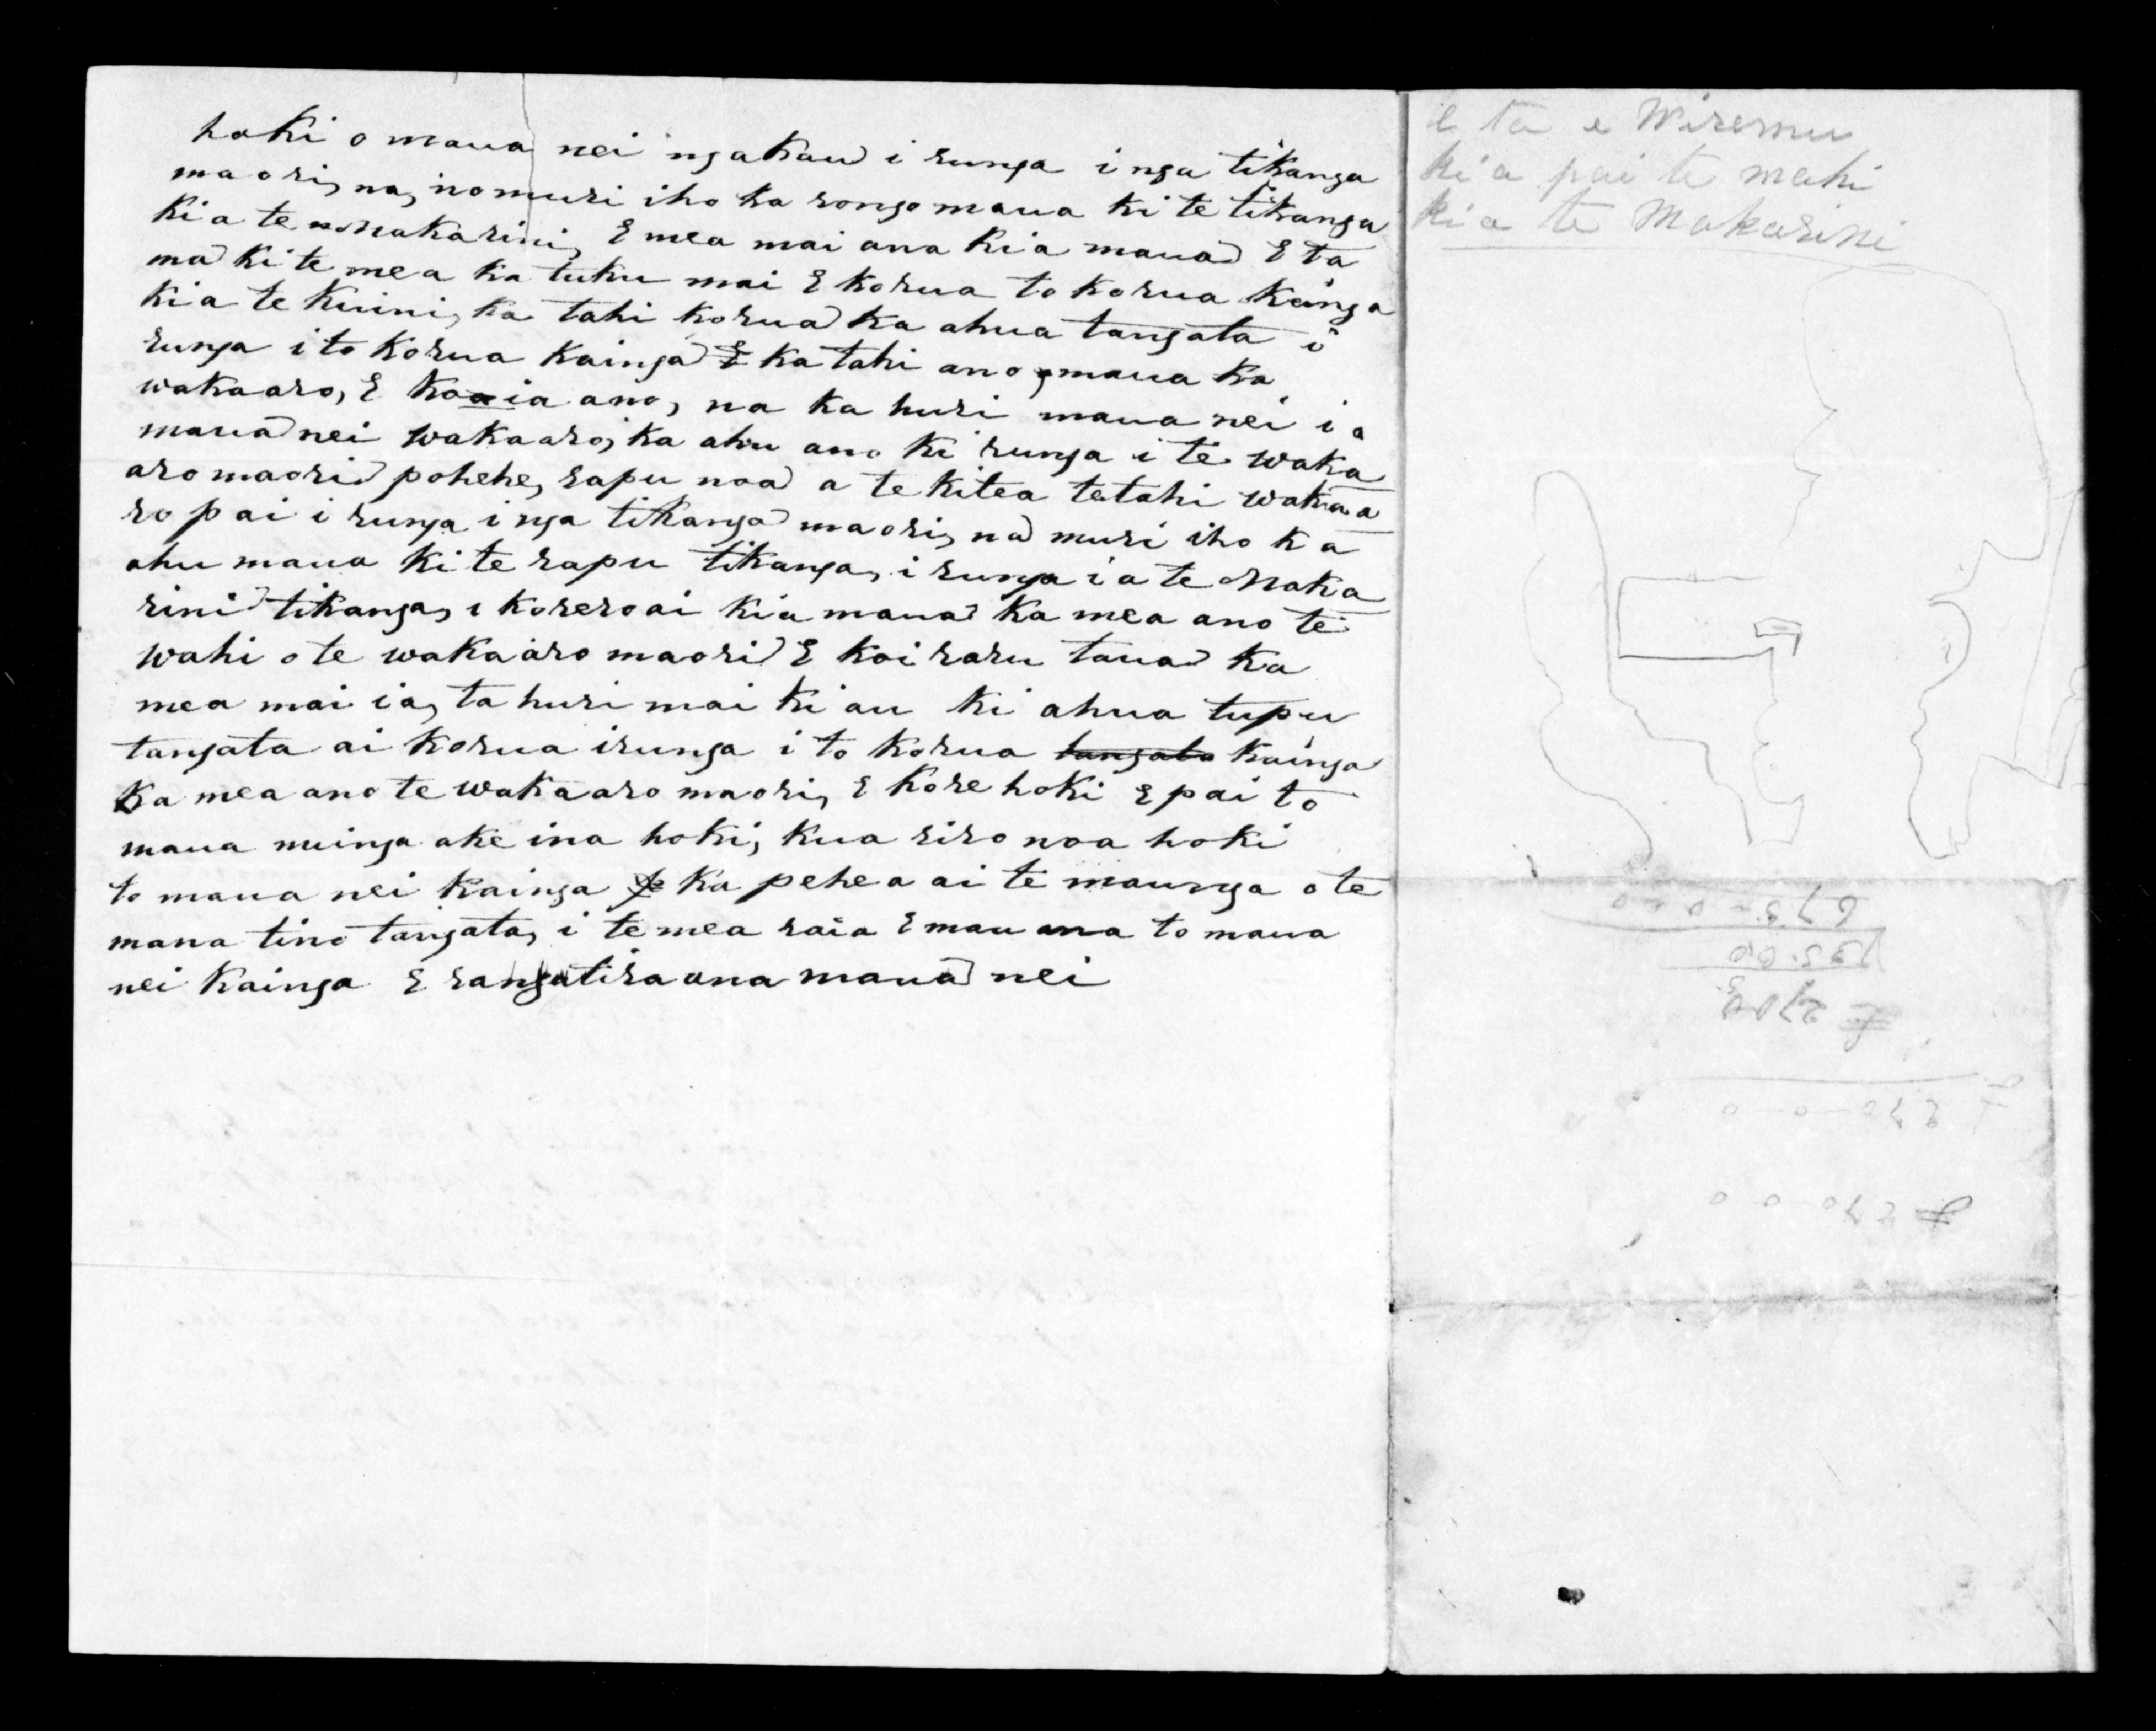 hoki o maua nei ngakau i runga i nga tikanga
maori, na, no muri iho ka rongo maua ki te tikanga
kia te Makarini, E mea mai ana kia maua E ta
ma ki te mea ka tuku mai E korua to korua kainga
kia te Kuini, ka tahi korua ka ahua tangata i
runga i to korua kainga E ka tahi ano, maua ka
wakaaro, E koaia ano, na ka huri maua nei i a
maua nei wakaaro, ka ahu ano ki runga i te waka
aro maori pohehe, rapu noa a te kitea tetahi wakaa
ro pai i runga i nga tikanga maori, na muri iho ka
ahu maua ki te rapu tikanga, i runga i a te Maka
rini tikanga, i korero ai kia maua ka mea ano te
wahi o te wakaaro maori E koi raru taua ka
mea mai ia, ta huri mai ki au ki ahua tupu
tangata ai korua i runga i to korua tangata kainga
Ka mea ano te wakaaro maori, E kore hoki E pai to
maua muinga ake ina hoki, kua riro noa hoki
to maua nei kainga ka pehea ai te maunga o te
mana tino tangata, i te mea raia E mau ana to maua
nei kainga E rangatira ana maua nei
E ta e Wiremu
kia pai te mahi
kia te Makarini
675-0-0
135.00
£ 270-0-0
£ 270 0 0